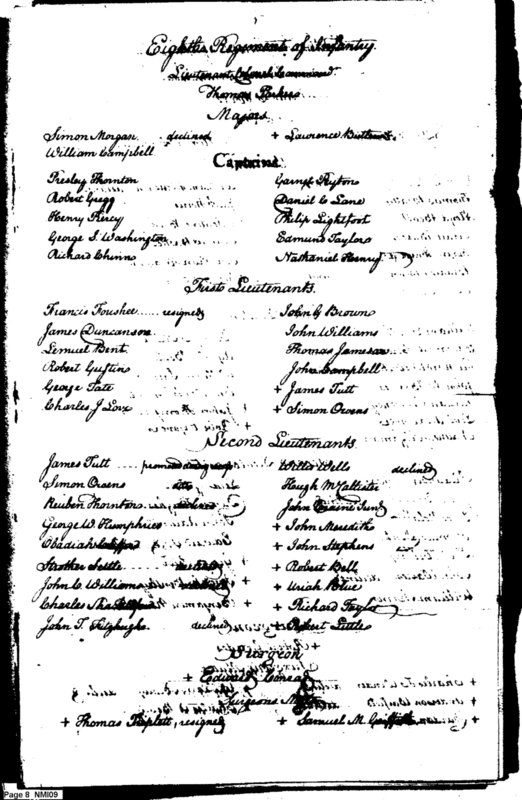 Eighth Regiment of Infantry.
Lieutenant Colonel Command^t
Thomas Parker
Majors
Simon Morgan declined + Lawrence Butler
William Campbell
Captains
Presley Thornton Garnet Peyton
Robert Gregg Daniel C Lane
Henry Piercy Philip Lightfoot
George S. Washington Edmund Taylor
Richard Chinn Nathaniel Henry
First Lieutenants.
Francis Foushee ..... resigned John G Brown
James Duncanson John Williams
Lemuel Bent Thomas Jameson
Robert Gustin John Campbell
George Tate + James Tutt
Charles J Love + Simon Owens
Second Lieutenants
James Tutt .... Willis Wells declined
Simon Owens Hugh McCallister
Reuben Thornton declined John
George W. Humphries + John Meredith
Obadiah + John Stephens
Strother Settle declined + Robert Bell
John C. Williams + Uriah Blue
Charles + Richard Taylor
John T. Fitzhugh declined + Robert Little
Surgeon
+ Edward Conrad
Surgeons Mates
+ Thomas Triplett, resigned + Samuel M. Griffith
Page 8 NMI09